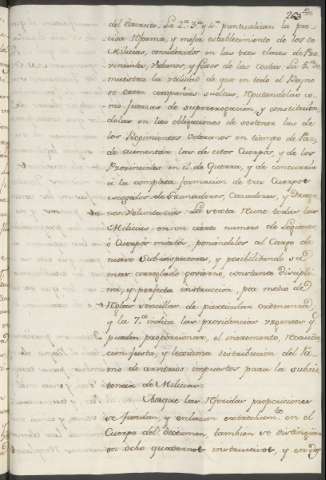 del Exercito. La 2.ª 3.ª y 4.ª puntualizan la pre-
cisa reforma, y mejor establecimiento de los de
Milicias, considerados en las tres clases de Pro-
vinciales, Urbanos, y fixos de las Costas. La 5.ª de-
muestra la utilidad de que en todo el Reyno
se creen compañias sueltas, reputandolas co-
mo fuerzas de supererogacion, y constituien-
dolas en las obligaciones de sostener las de
los Regimientos Urbanos en tiempo de Paz;
de aumentar las de estos Cuerpos, y de los
Provinciales en el de Guerra, y de concurrir
á la completa formacion de tres Cuerpos
escogidos de Granaderos, Cazadores, y Drago-
nes Voluntarios. La sexta reune todas las
Milicias en un cierto numero de Legiones
ó Cuerpos mixtos, poniendolos al Cargo de
nueve Subinspectores, y posibilitando su
mas arreglado govierno, constante Discipli-
na, y perfecta instruccion, por medio de
reglas sencillas de particular ordenanza,
y la 7.ª indica las providencias urgentes q.
pueden proporcionar, el incremento, recauda-
cion justa, y legitima distribucion del Ra-
mo de arvitrios impuestos para la subsis-
tencia de Milicias.
Aunque las referidas proposiciones
se fundan, y enlazan estrecham.te en el
Cuerpo del Dictamen, tambien se distinguen
en ocho quadernos instructivos, y en